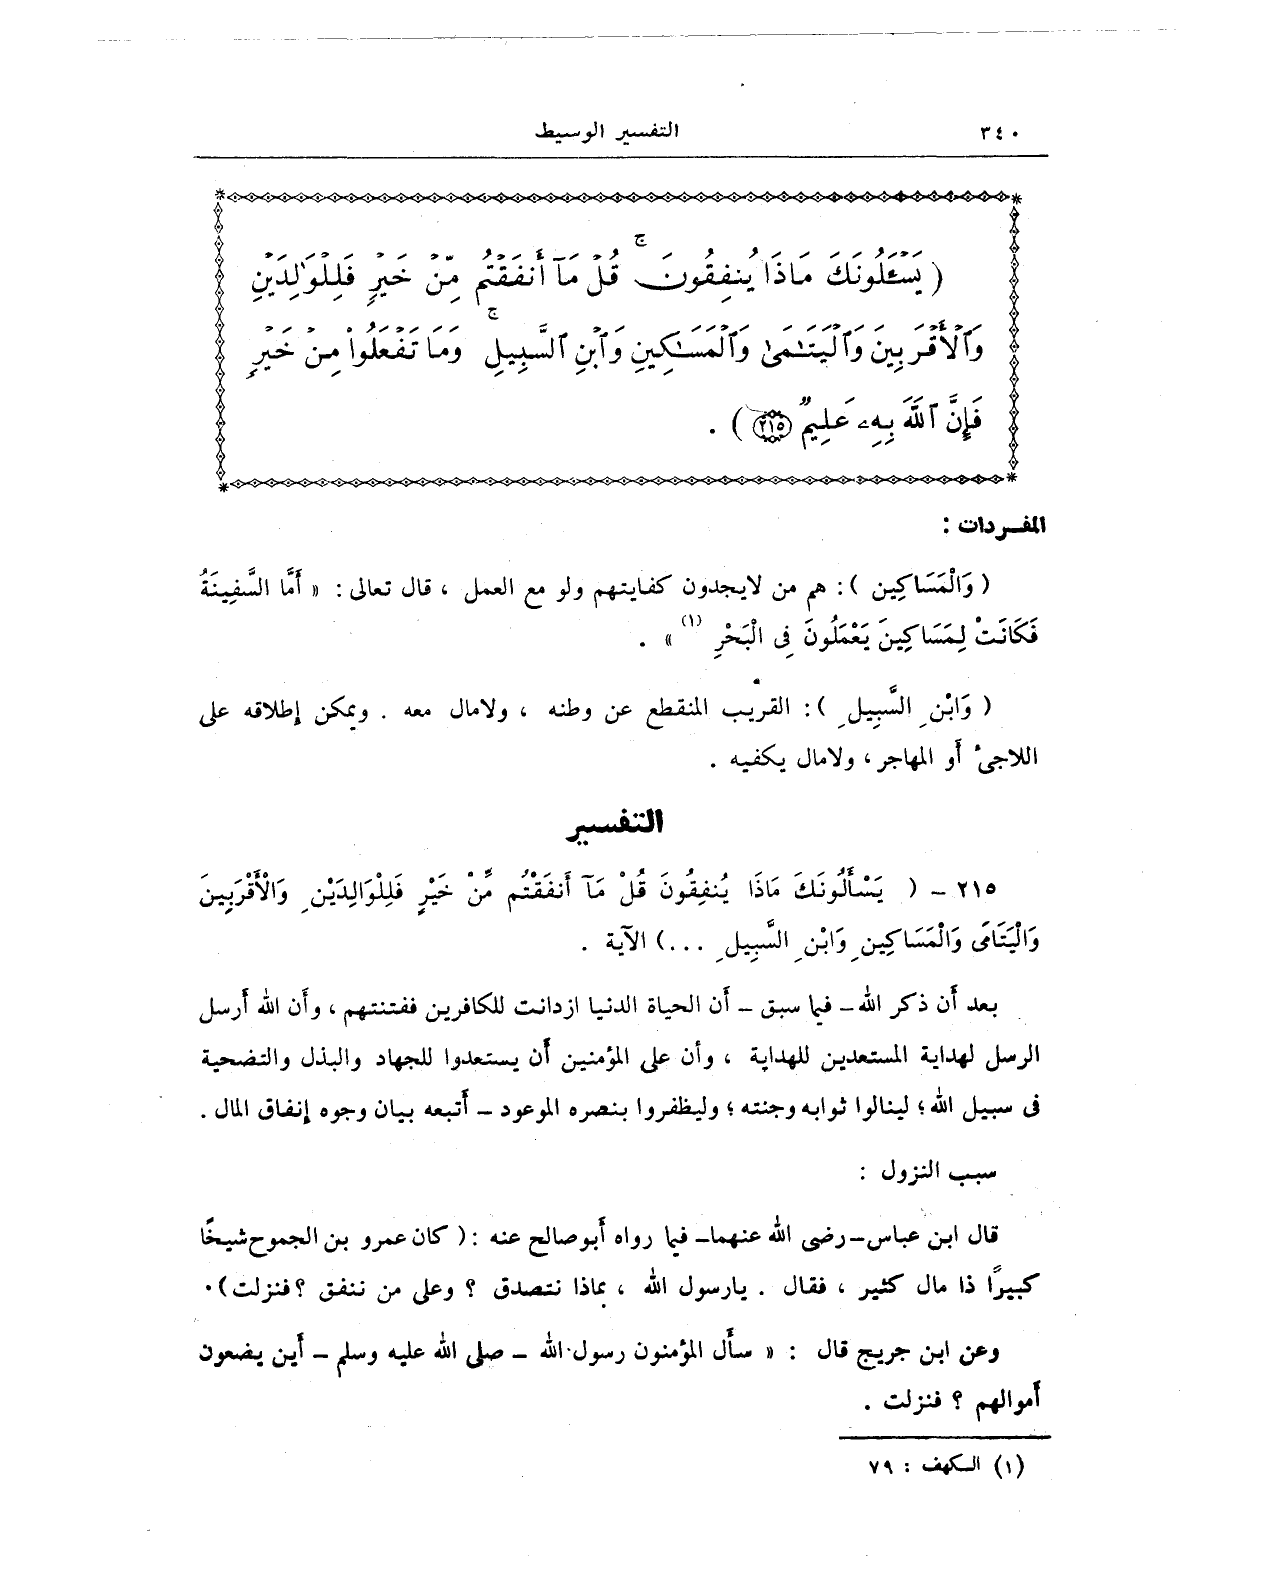 ٣٤٠
التفسير الوسيط
( يَسْـَٔلُونَكَ مَاذَا يُنفِقُونَ ۖ قُلْ مَآ أَنفَقْتُم مِّنْ خَيْرٍ فَلِلْوَٰلِدَيْنِ
وَٱلْأَقْرَبِينَ وَٱلْيَتَـٰمَىٰ وَٱلْمَسَـٰكِينِ وَٱبْنِ ٱلسَّبِيلِ ۚ وَمَا تَفْعَلُوا۟ مِنْ خَيْرٍ
فَإِنَّ ٱللَّهَ بِهِۦ عَلِيمٌ ٢١٥ ) .
المفـردات :
( وَالْمَسَاكِين ) : هم من لايجدون كفايتهم ولو مع العمل ، قال تعالى : « أَمَّا السَّفِينَةُ
فَكَانَتْ لِمَسَاكِينَ يَعْمَلُونَ فِى الْبَحْرِ (١) » .
( وَابْنِ السَّبِيلِ ) : القريب المنقطع عن وطنه ، ولامال معه . ويمكن إطلاقه على
اللاجئ أو المهاجر ، ولامال يكفيه .
التفسير
٢١٥ - ( يَسْأَلُونَكَ مَاذَا يُنفِقُونَ قُلْ مَآ أَنفَقْتُم مِّنْ خَيْرٍ فَلِلْوَالِدَيْنِ وَالْأَقْرَبِينَ
وَالْيَتَامَى وَالْمَسَاكِينِ وَابْنِ السَّبِيلِ ...) الآية .
بعد أن ذكر الله - فيما سبق - أن الحياة الدنيا ازدانت للكافرين ففتنتهم ، وأن الله أرسل
الرسل لهداية المستعدين للهداية ، وأن على المؤمنين أن يستعدوا للجهاد والبذل والتضحية
فى سبيل الله ؛ لينالوا ثوابه وجنته ؛ وليظفروا بنصره الموعود - أتبعه بيان وجوه إنفاق المال .
سبب النزول :
قال ابن عباس - رضى الله عنهما - فيما رواه أبو صالح عنه : ( كان عمرو بن الجموح شيخًا
كبيرًا ذا مال كثير ، فقال . يارسول الله ، بماذا نتصدق ؟ وعلى من ننفق ؟ فنزلت ) .
وعن ابن جريج قال : « سأل المؤمنون رسول الله - صلى الله عليه وسلم - أين يضعون
أموالهم ؟ فنزلت .
(١) الكهف : ٧٩